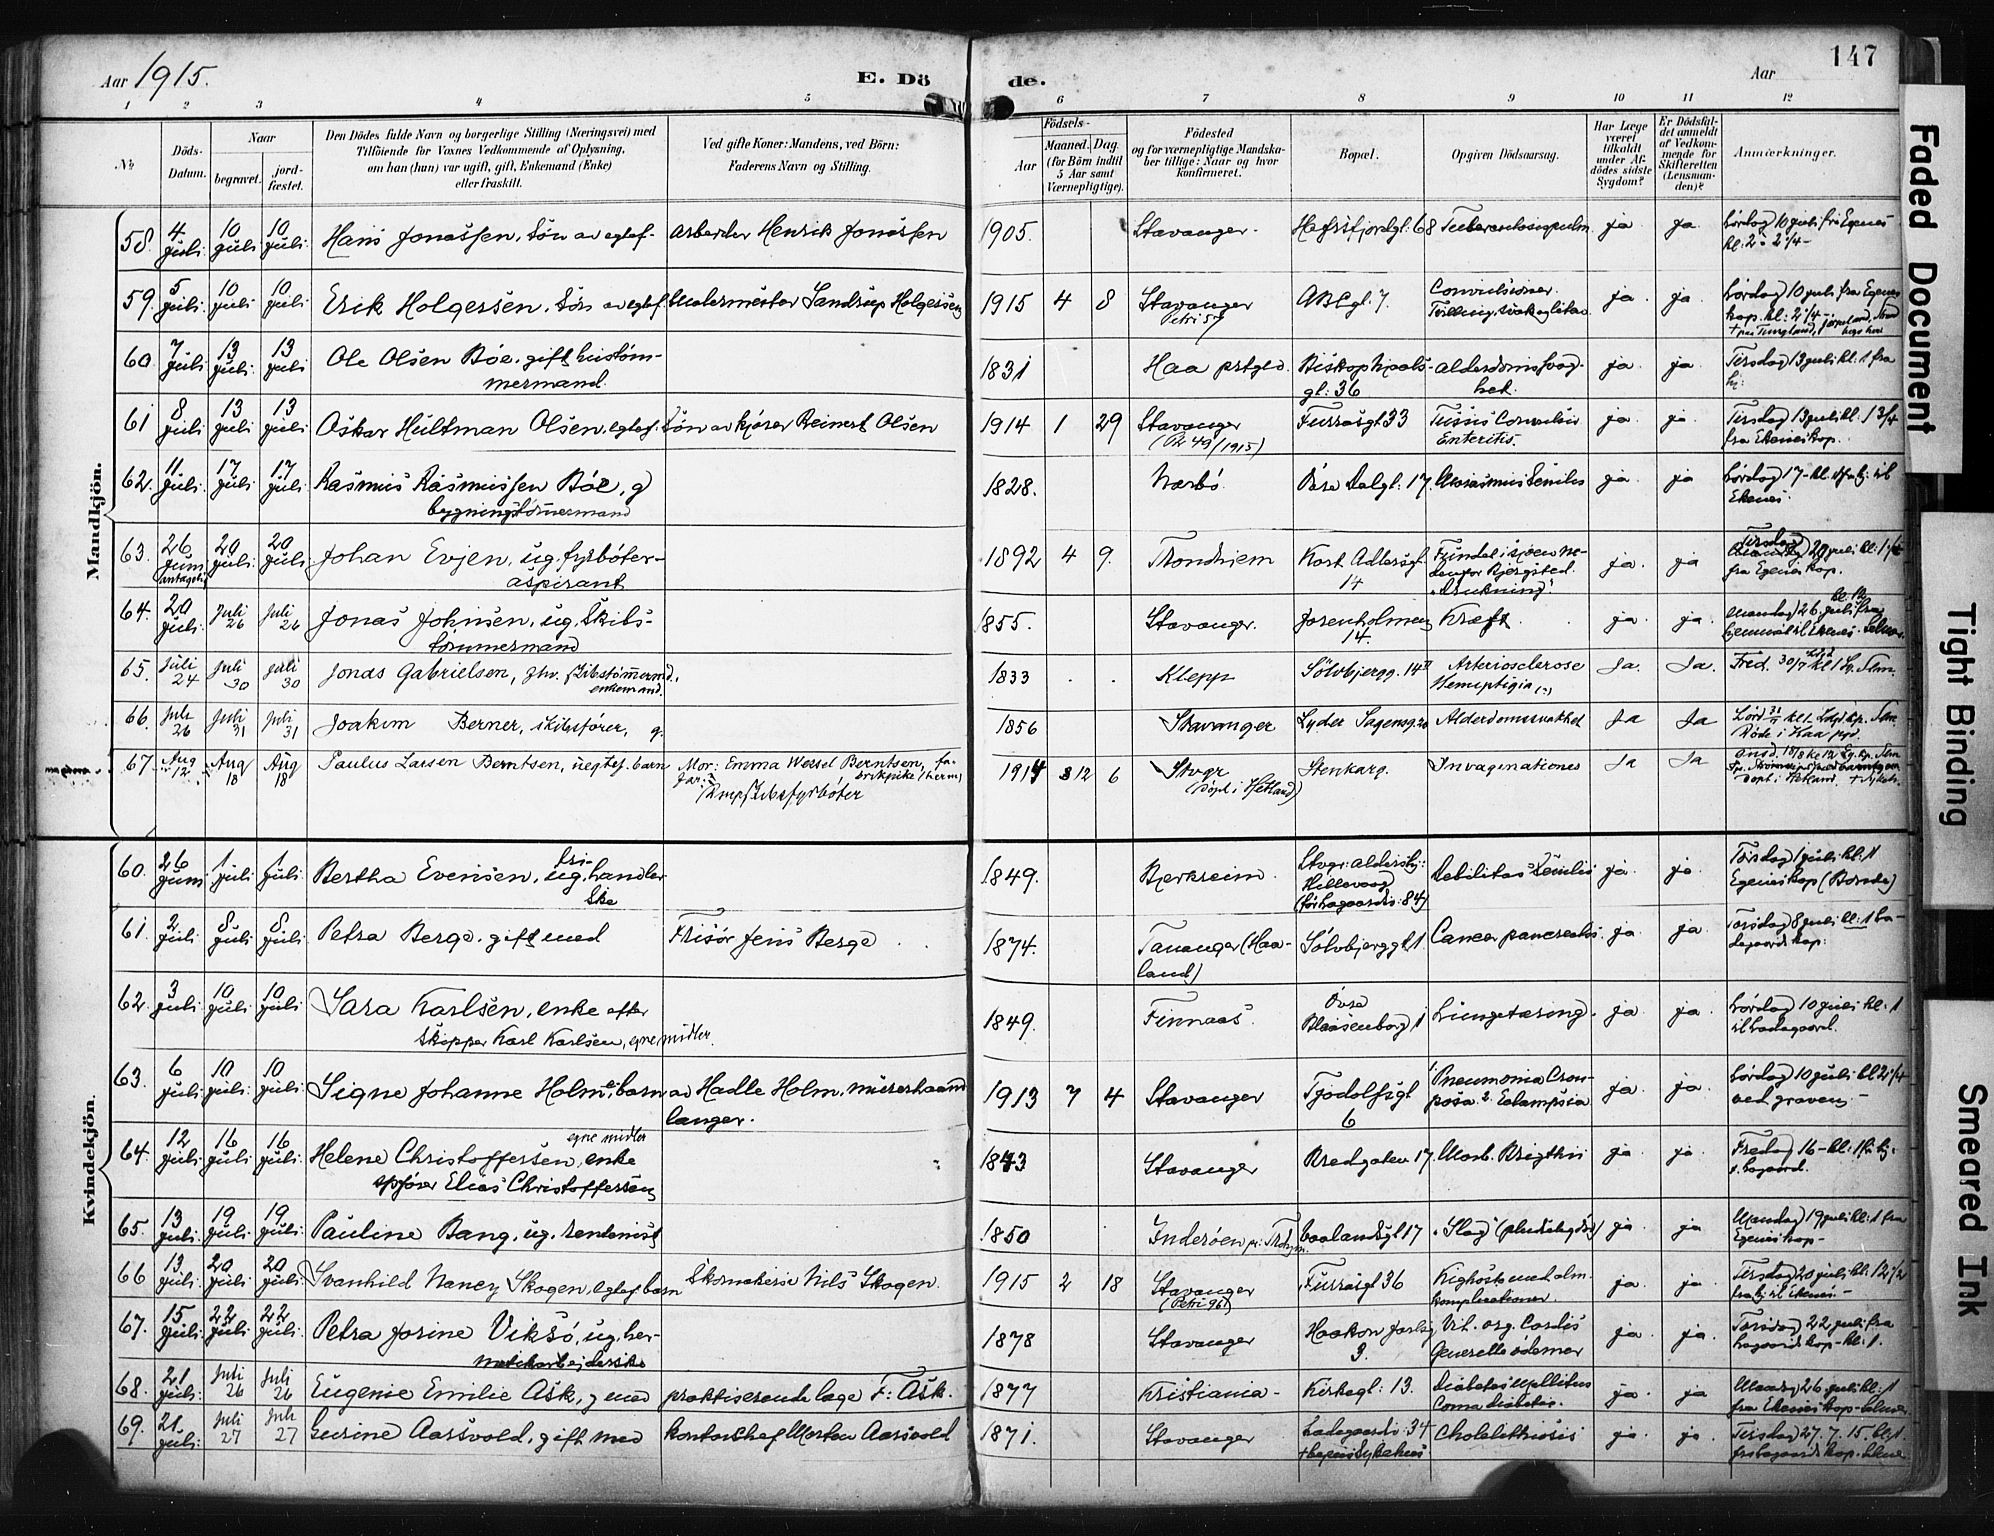 147
Aar 1915.
E. Dö de.
Aar
1 2 3 4 5 6 7 8 9 10 11 12
No.
Döds-Datum.
Naar
begravet.
jord-fæstet.
Den Dödes fulde Navn og borgerlige Stilling (Næringsvei) med
Tilføiende for Voxnes Vedkommende af Oplysning,
om han (hun) var ugift, gift, Enkemand (Enke)
eller fraskilt.
Ved gifte Koner: Mandens, ved Börn:
Faderens Navn og Stilling.
Födsels-
Aar
Maaned. Dag.
(for Börn indtil
5 Aar samt
Værnepligtige).
Födested
og for værnepligtige Mandska-
ber tillige: Naar og hvor
konfirmeret.
Bopæl.
Opgiven Dödsaarsag.
Har Læge
været
tilkaldt
under Af-
dödes sidste
Sygdom?
Er Dödsfal-
det anmeldt
af Vedkom-
mende for
Skifteretten
(Lensman-
den)?
Anmærkninger.
Mandkjön.
58. 4 Juli 10 Juli 10 Juli Hans Jonassen, Søn av egtef. arbeider Henrik Jonassen 1905. Stavanger. Hafrsfjordgt. 68 ja. ja. Lørdag 10 juli fra Egenes
kl: 2 - 2 1/4 -
59. 5 Juli 10 Juli 10 Juli Erik Holgersen, Søn av egtef. Malermester Sandrup Holgersen 1915 4 8 Stavanger ABCgt. 7 Convulsioner. ja. ja. Lørdag 10 juli fra Egenes
Petri 57 kap. kl: 2 1/4 -
60 7 Juli 13 Juli 13 Juli Ole Olsen Bøe, gift hustøm-
mermand. 1831 Haa prstgld. gt: 36 alderdomssvag-
het. ja. ja. Tirsdag 13 juli kl. 1 fra
61 8 Juli 13 Juli 13 Juli Oskar Hultman Olsen, egtef. Søn av kjører Reinert Olsen 1914 1 29 Stavanger 33 Tussis Convulsiv
Enteritis. ja. ja Tirsdag 13 juli kl. 1 3/4
62. 11 Juli. 17 Juli 17 Juli Rasmus Rasmussen Bøe, g
bygningstømmermand 1828. Nærbø. Dalgt. 17. Marasmus Senilis ja. ja Lørdag 17 - kl.
63. 26 Juni 20 Juli 20 Juli Johan Evjen, ug. fyrbøter-
aspirant 1892 4 9. Trondhjem Kort Adlersgt.
14 Fundet i sjøen ne-
denfor Bjergsted.
"Drukning". ja. ja Tirsdag 20 juli kl: 1 1/2
fra Egenes kap.
64. 20 Juli. Juli 26 Juli 26 Jonas Johnsen, ug. Skibs-
tømmermand 1855. Stavanger. Kræft. ja. ja. Mandag 26. juli fra
65. Juli 24 Juli 30 Juli 30 Jonas Gabrielsen, fhv. skibstømmermd.,
enkemand. 1833 Klepp Sølvbjergg. 14 Arteriosclerose Ja. Ja. Fred. 30/7 kl 1
66. Juli 26 Juli 31 Juli 31 Joakim Berner, skibsfører, g. 1856 Stavanger Lyder Sagensg. Alderdomssvakhet Ja Ja
67. Aug 12. Aug 18 Aug 18 Paulus Larsen Berntsen, uegtef. barn Mor: Emma Wessel Berntsen, fa-
brikpike 1914 12 6 Stvgr
(Døpt i Hetland) Stenkarg. Invaginationes Ja Ja
Kvindekjön.
60. 26 Juni 1 Juli 1 Juli Bertha Evensen, ug. handler
ske 1849. Bjerkreim. Stvgr: aldershj:
Hillevaag Debilitas Senilis ja. ja. Torsdag 1 juli kl: 1
Egenes kap
61. 2 Juli 8 Juli 8 Juli Petra Berge, gift med Frisør Jens Berge 1874. Tananger (Haa-
land) Sølvbjerggt 1 Cancer pancreatis. ja. ja. Torsdag 8 juli kl: 1 La-
degaards kap:
62. 3 Juli. 10 Juli. 10 Juli Sara Karlsen, enke efter
Skipper Karl Karlsen, egne midler. 1849. Finnaas. Øvre
Blaasenborg 1 Lungetæring. ja. ja. Lørdag 10 juli kl. 1
til Ladegaard.
63. 6 Juli. 10 Juli. 10 Juli. Signe Johanne Holm, e. barn av Hadle Holm, murerhaand
langer. 1913 7 4 Stavanger Tjodolfsgt
6 1. Pneumonia Crou-
posa 2. Eclampsia ja. ja. Lørdag 10 juli kl 2 1/4
ved graven. -
64. 12 Juli 16 Juli. 16 Juli. egne midler
Helene Christoffersen, enke
Elias Christoffersen 1843 Stavanger Bredgaten 17. Morb. Brigthii ja. ja. Fredag 16 - kl:
65. 13 Juli. 19 Juli. 19 Juli. Pauline Bang, ug. rentenist 1850 Inderøen Vaalandsgt 17 "Slag" ja. ja Mandag 19 juli kl: 1 fra
Egenes kap -
66 13 Juli. 20 Juli. 20 Juli. Svanhild Nancy Skogen, egtef. barn Skomakersv. Nils Skogen. 1915 2 18 Stavanger
(Petri 96) 36 Kighoste med alm.
komplicationer. ja ja. Tirsdag 20 juli kl. 12 1/2
67. 15 Juli. 22 Juli. 22 Juli. Petra Josine Viksø, ug. her-
metikarbejderske 1878 Stavanger Haakon Jarlsg
3. Vit. org. Cordis
Generelle ødemer ja. ja. Torsdag 22 juli fra
68. 21 Juli. Juli 26 Juli 26 Eugenie Emilie Ask, g med praktiserende læge F: Ask. 1877 Kristiania - Kirkegt: 13. Diabetes Mellitus
Coma diabetic. ja. ja Mandag 26 juli kl: 1
69. 21 Juli. Juli 27 Juli 27 Gurine Aarsvold, gift med kontorchef Morten Aarsvold 1871. Stavanger Ladegaardsv. 34 Cholelithiasis ja. ja. Tirsdag 27. 7. 15. kl. 1.
Faded Document
Tight Binding
Smeared Ink